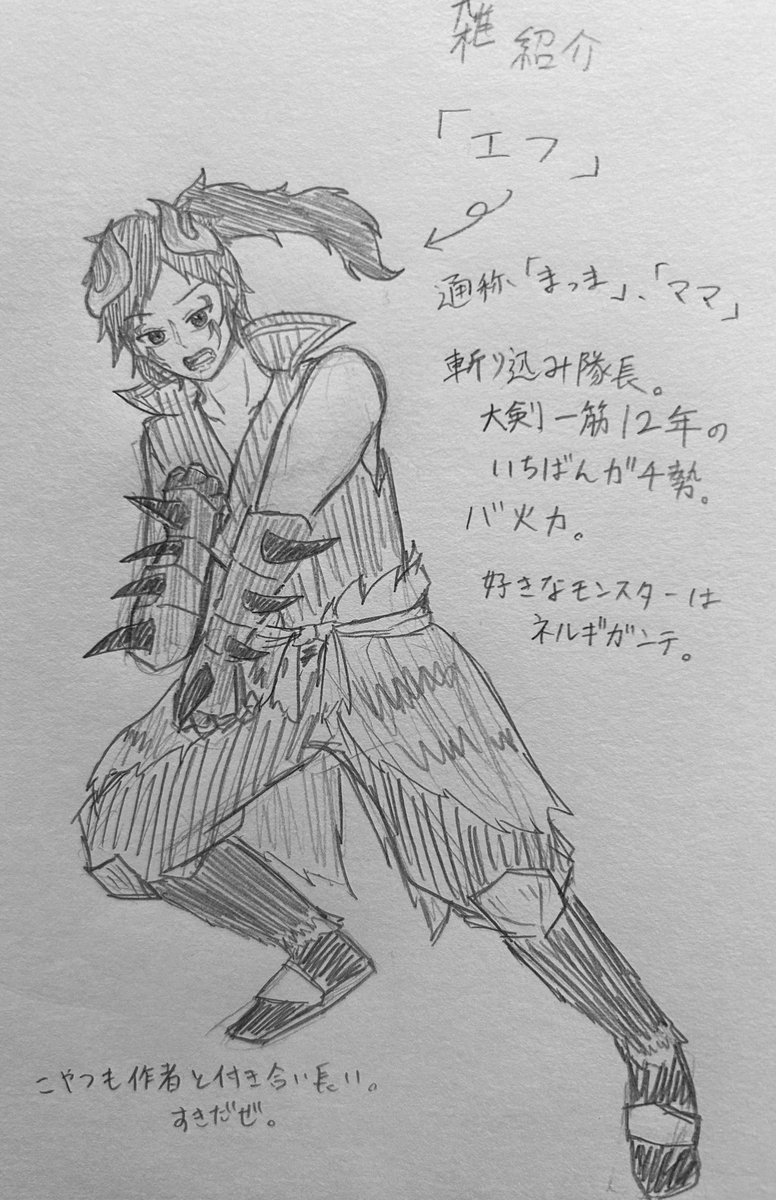 雑紹介
「エフ」
通称、「まつま」、「ママ」
斬り込み隊長。
大剣一筋12年の
いちばんガチ勢。
バ火力。
好きなモンスターは
ネルギガンテ。
こやつも作者と付き合い長い。
すきだぜ。